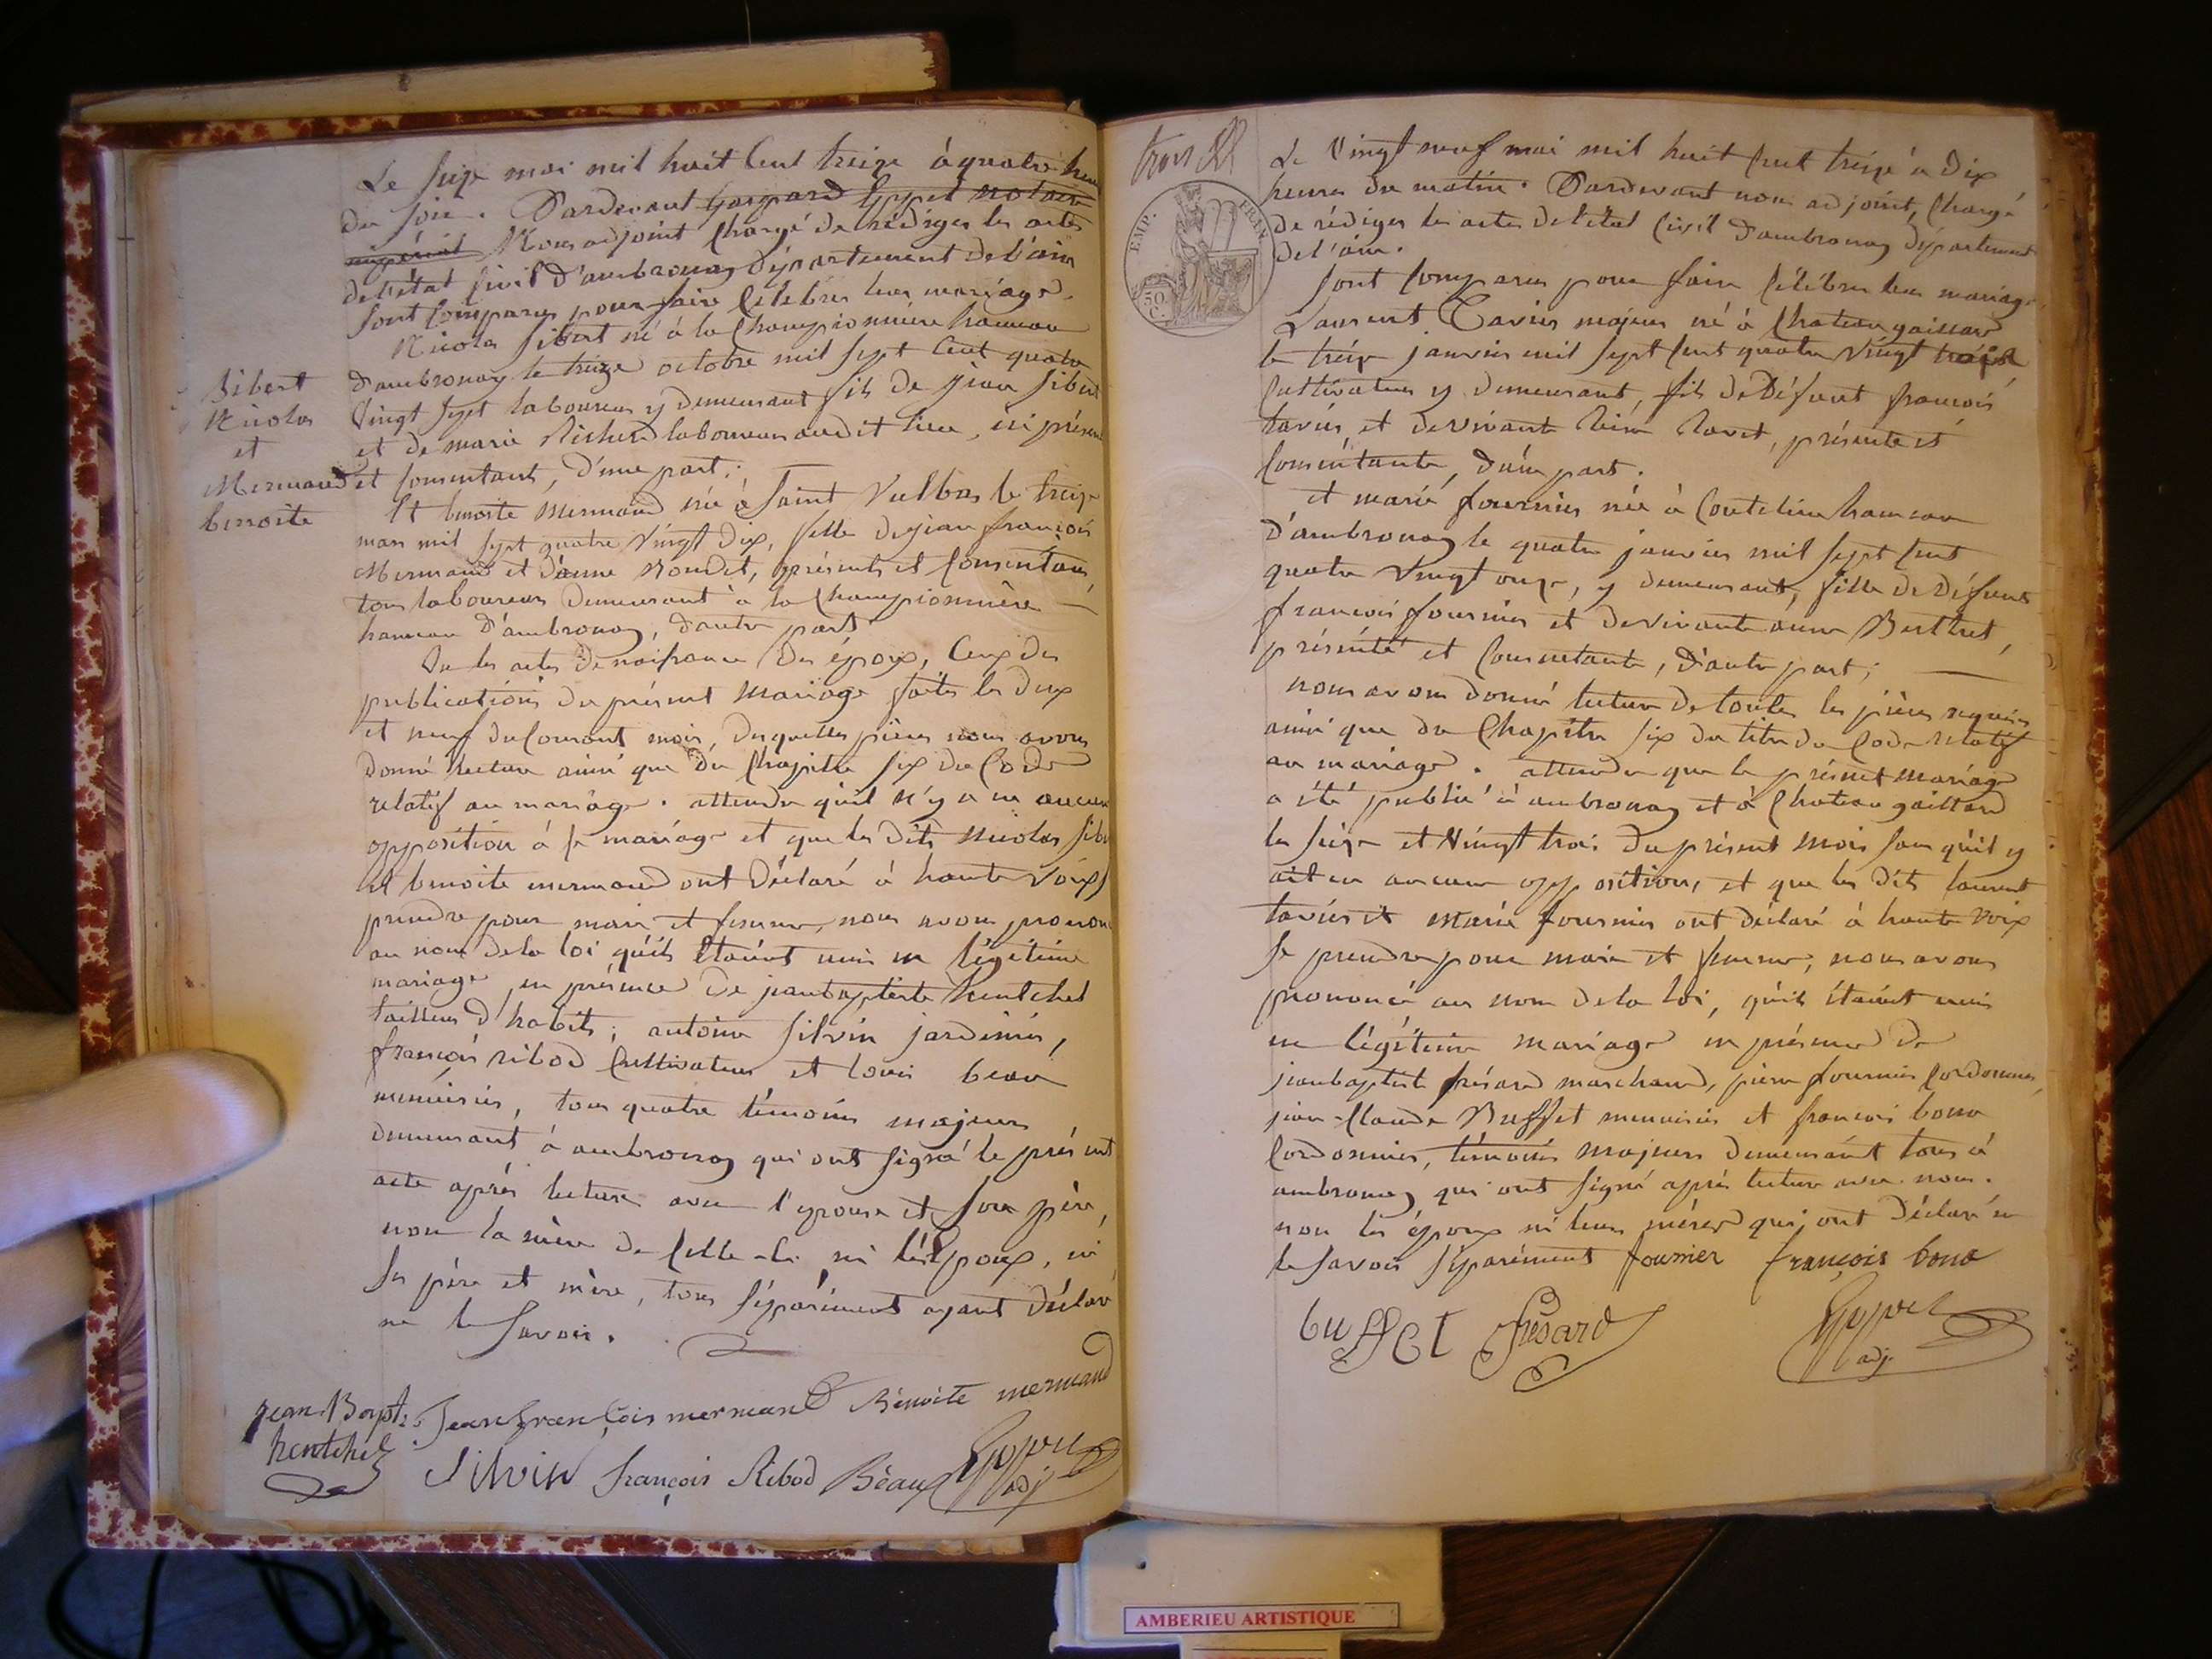 Le seize mai mil huit cent treize à quatre heures
du soir. Pardevant gaspard Goppet notaire
impérial Nous adjoint chargé de rédiger les actes
de l'état civil d'ambronay département de l'ain
sont comparus pour faire célébrer leur mariage.
Nicolas Sibert né à la Championnière hameau
d'ambronay le treize octobre mil sept cent quatre
vingt sept laboureur y demeurant fils de jean Sibert
et de marie Richerd laboureurs audit lieu, ici présents
et consentants, d'une part;
Sibert
Nicolas
et
Mermand
benoite
Et benoite Mermand née à Saint Vulbas le treize
mars mil sept quatre vingt dix, fille de jean françois
Mermand et d'anne, présents et consentants,
tous laboureurs demeurant à la Championnière
hameau d'ambronay, d'autre part.
Vu les actes de naissance des époux, ceux des
publications du présent mariage faites les deux
et neuf du courant mois, desquelles pièces nous avons
donné lecture ainsi que du Chapitre six du Code
relatif au mariage. attendu qu'il n'y a eu aucune
opposition à ce mariage et que les dits Nicolas Sibert
et benoite mermand ont déclaré à haute voix se
prendre pour mari et femme, nous avons prononcé
au nom de la loi qu'ils étaient unis en légitime
mariage, en présence de jean baptiste hentchel
tailleur d'habits, antoine Silvin jardinier,
françois ribod cultivateur et louis beau
menuisier, tous quatre témoins majeurs
demeurant à ambronay qui ont signé le présent
acte après lecture avec l'épouse et son père,
non la mère de celle-ci ni l'époux, ni
ses père et mère, tous séparément ayant déclaré
ne le savoir.
jean Bapte
hentchel
Jean françois mermand Bénoite mermand
Silvin françois Ribod Béau Goppet
adj
trois
EMP. FRAN.
50
C.
Le vingt neuf mai mil huit cent treize à dix
heures du matin. Pardevant nous adjoint, chargé
de rédiger les actes de l'état civil d'ambronay département
de l'ain.
sont comparus pour faire célébrer leur mariage
Laurent Tavier majeur né à Chateau gaillard
le treize janvier mil sept cent quatre vingt trois
cultivateur y demeurant, fils de Défunt françois
tavier, et de vivante, présente et
consentante, d'une part.
et marie fournier née à Coutelieu hameau
d'ambronay le quatre janvier mil sept cent
quatre vingt onze, y demeurant, fille de Défunt
françois fournier et de vivante anne Berthet,
présente et consentante, d'autre part;
nous avons donné lecture de toutes les pièces requises
ainsi que du Chapitre six du titre du Code relatif
au mariage. attendu que le présent mariage
a été publié à ambronay et à Chateau gaillard
les seize et vingt trois du présent mois sans qu'il y
ait eu aucune opposition, et que les dits laurent
tavier et marie fournier ont déclaré à haute voix
se prendre pour mari et femme, nous avons
prononcé au nom de la loi, qu'ils étaient unis
en légitime mariage en présence de
jean baptiste frésard marchand, pierre fournier cordonnier,
jean-Claude Buffet menuisier et françois bono
cordonnier, témoins majeurs demeurant tous à
ambronay qui ont signé après lecture avec nous.
non les époux ni leurs mères qui ont déclaré ne
le savoir séparément fournier françois bono
buffet frésard Goppet
adj.
AMBERIEU ARTISTIQUE